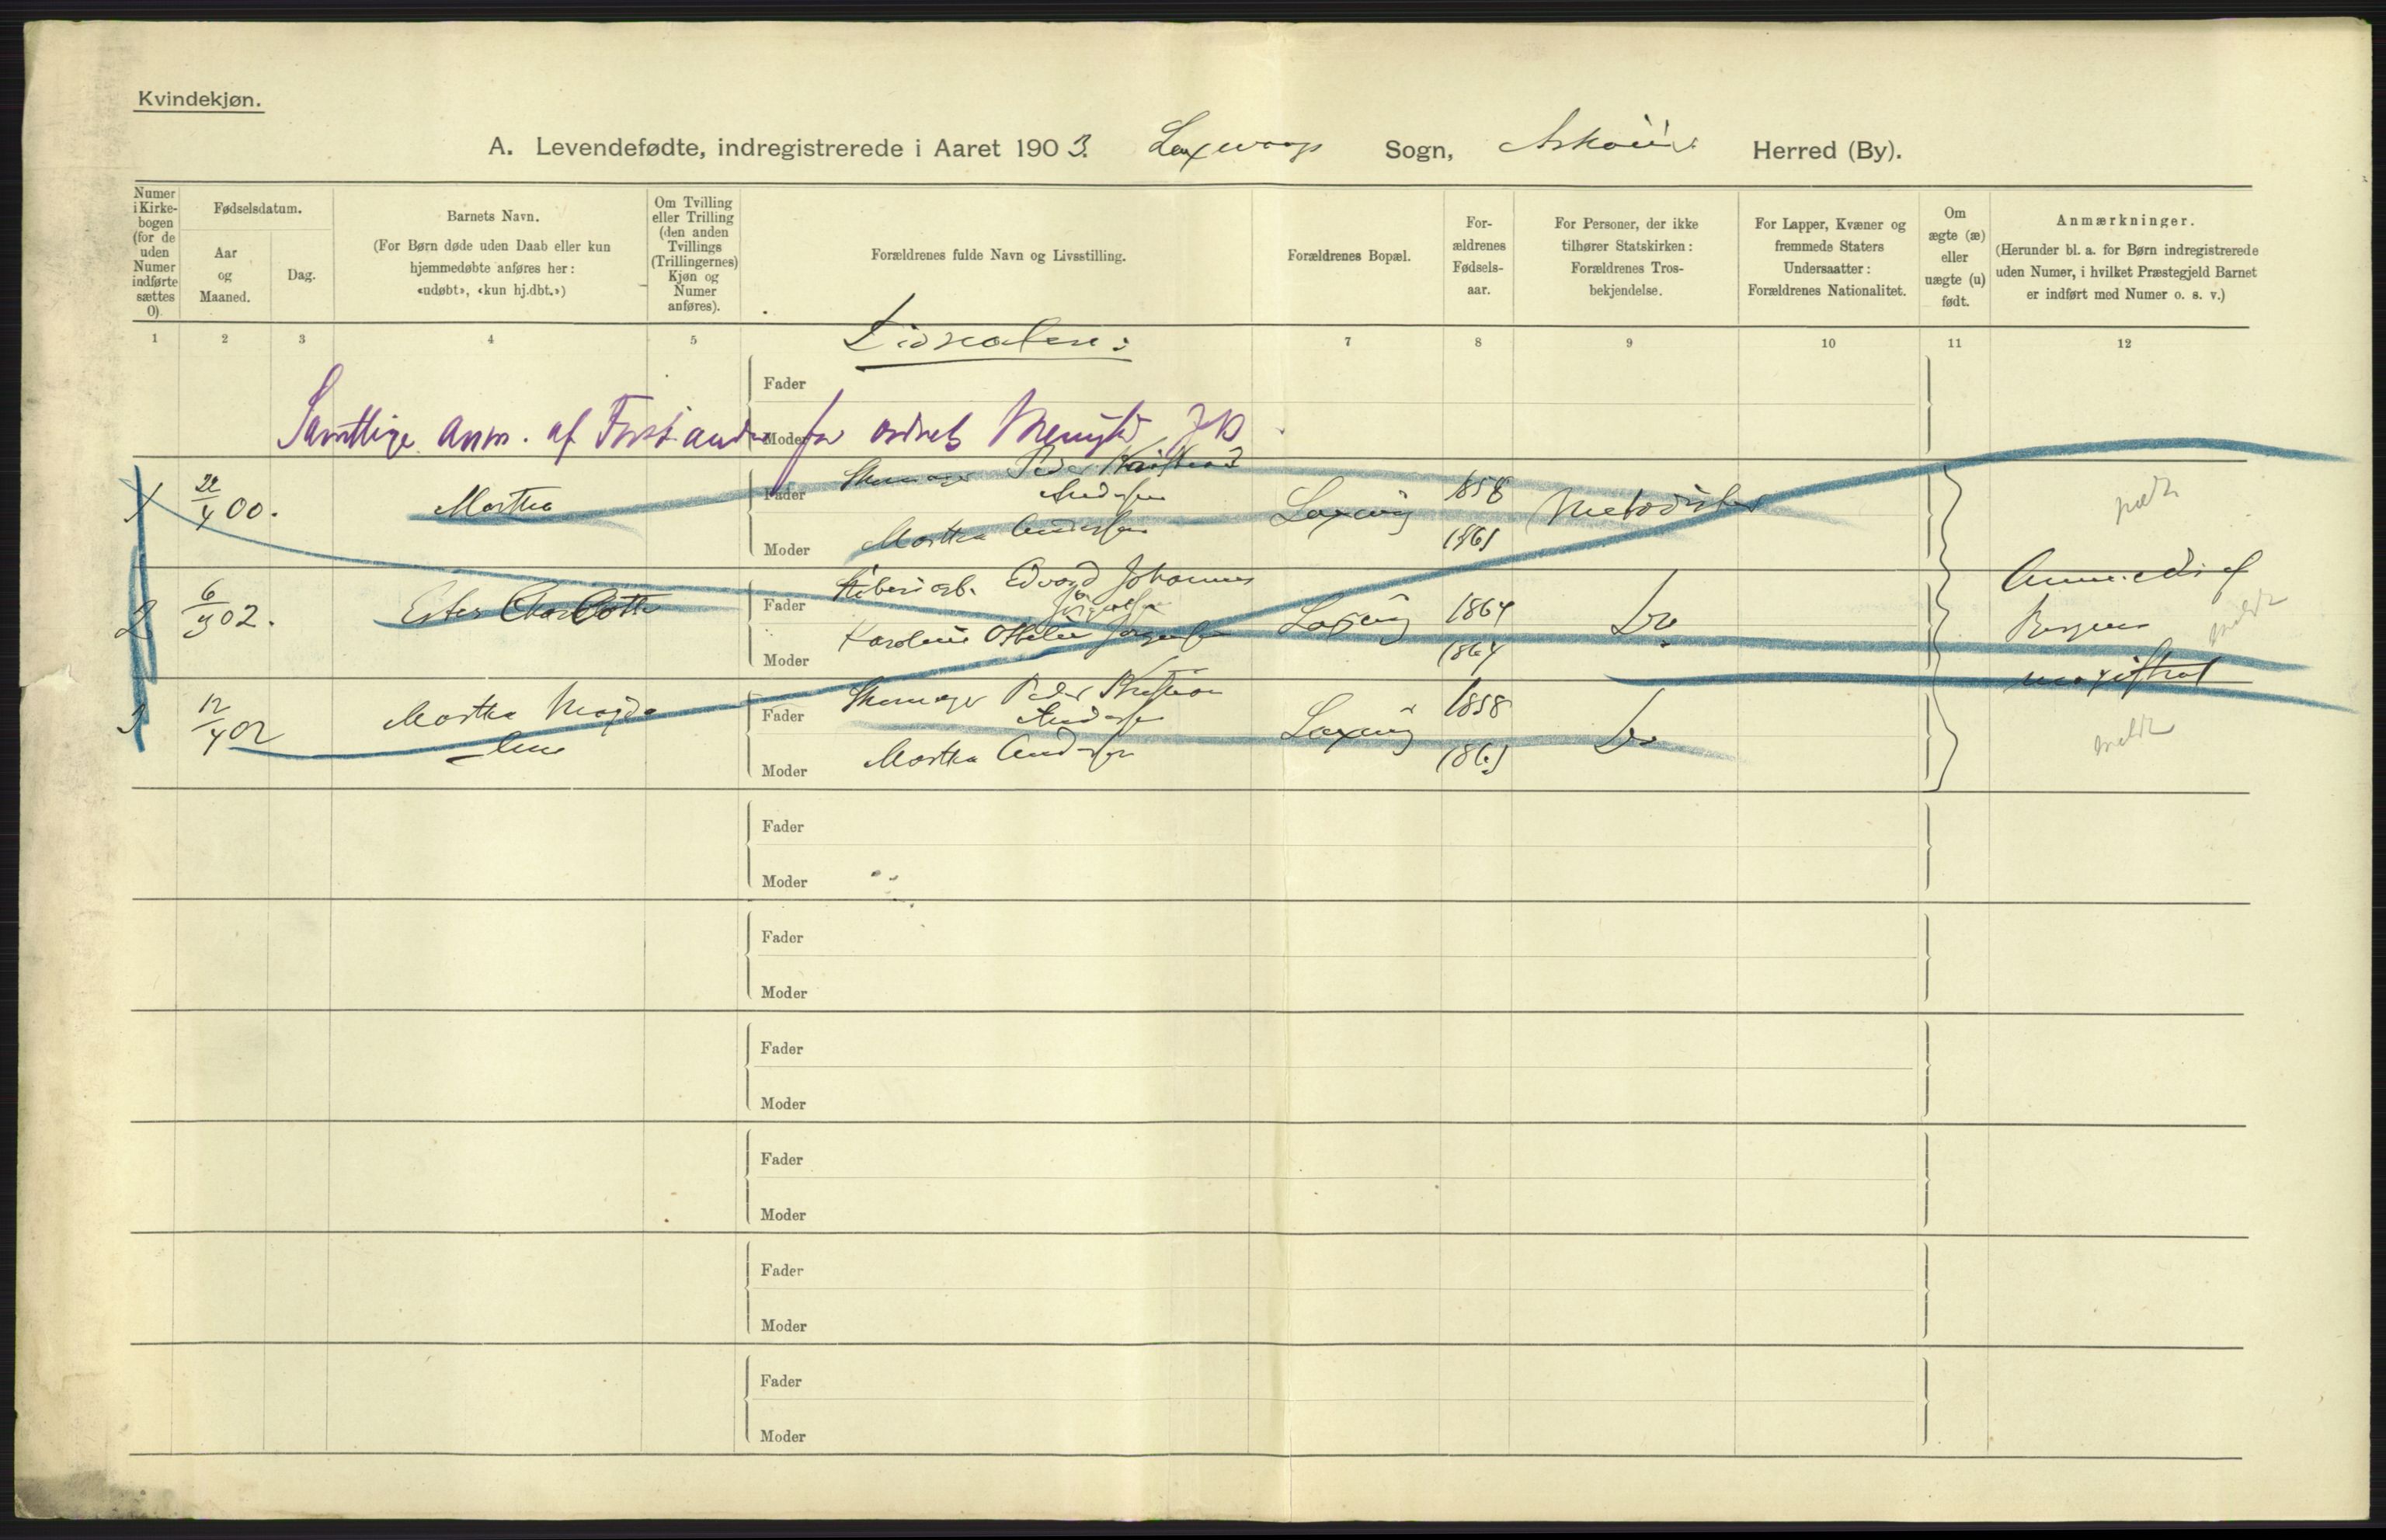 Kvindekjøn.
A. Levendefødte, indregistrerede i Aaret 1903. Laxevaags Sogn, Askøens Herred (By).
Numer i Kirke-bogen (for de uden Numer indførte sættes 0)
Fødselsdatum.
Aar og Maaned.
Dag.
Barnets Navn.
(For Børn døde uden Daab eller kun hjemmedøbte anføres her: «udøbt», «kun hj.dbt.»)
Om Tvilling eller Trilling (den anden Tvillings (Trillingernes) Kjøn og Numer anføres).
Forældrenes fulde Navn og Livsstilling.
Forældrenes Bopæl.
For-ældrenes Fødsels-aar.
For Personer, der ikke tilhører Statskirken: Forældrenes Tros-bekjendelse.
For Lapper, Kvæner og fremmede Staters Undersaatter: Forældrenes Nationalitet.
Om ægte (æ) eller uægte (u) født.
Anmærkninger.
(Herunder bl. a. for Børn indregistrerede uden Numer, i hvilket Præstegjeld Barnet er indført med Numer o. s. v.)
1 2 3 4 5 7 8 9 10 11 12
Fader
Samtlige anm. af Forstander for
Moder
1 22/4 00. Martha
Fader Peder Kristian Andersen 1858
Laxevåg Metodister
Moder Martha Andersen 1861
2 6/3 02. Ester Charlotte
Fader Edvard Johannes 1864
Laxevåg Do
Moder Karoline Othelie Jørgensen 1864
Anmeldt af
Bergens
magistrat
meldt
3 12/4 02 Martha Magda
Fader Skomager Peder Kristian Andersen 1858
Laxevåg Do
Moder Martha Andersen 1861
meldt
Fader
Moder
Fader
Moder
Fader
Moder
Fader
Moder
Fader
Moder
Fader
Moder